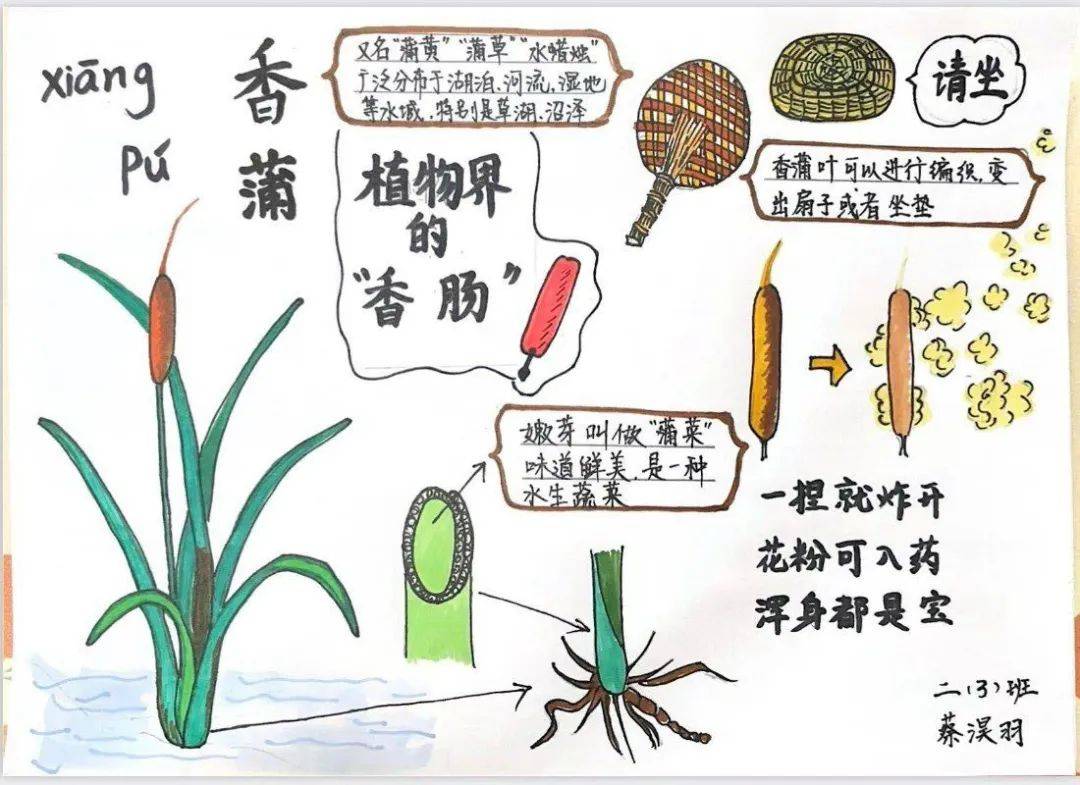 xiāng
pú
香
蒲
又名"蒲黄""蒲草""水蜡烛"
广泛分布于湖泊、河流、湿地
等水域,特别是草湖、沼泽
植物界
的
"香肠"
请坐
香蒲叶可以进行编织,变
出扇子或者坐垫
嫩芽叫做"蒲菜"
味道鲜美,是一种
水生蔬菜
一捏就炸开
花粉可入药
浑身都是宝
二(3)班
蔡淏羽